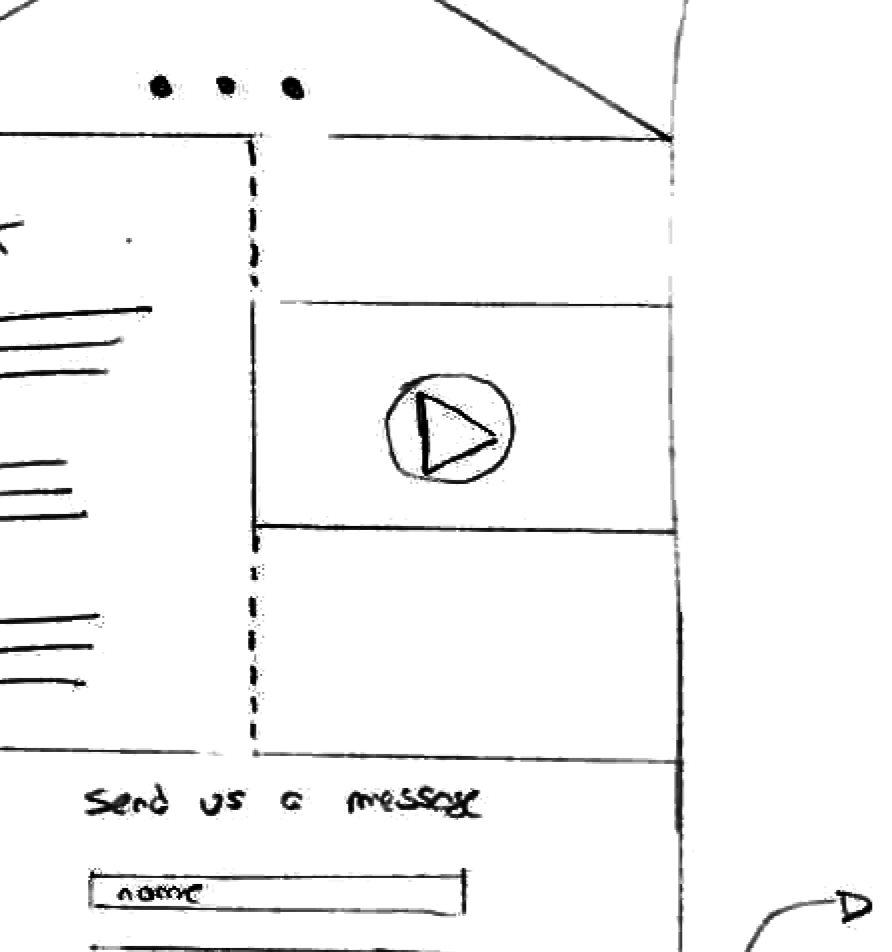 Send us a message
name